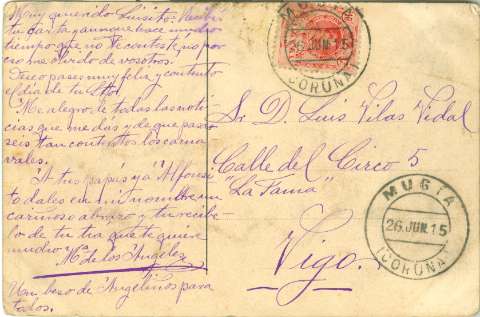 Muy querido Luisito: Recibi
tu carta, y aunque hace mucho
tiempo que no te contesté, no por
eso me olvido de vosotros.
Deseo pases muy feliz y contento
el día de tu Sto.
Me alegro de todas las noti-
cias que me dás y de que pasa-
seis tan contentos los carna-
vales.
A tus papás y a Alfonsi-
to dales en mi nombre un
cariñoso abrazo y tu recibe-
lo de tu tia que te quiere
mucho
Mª de los Angeles
Un beso de Angelinos para
todos.
MUGIA
26 JUN 15
(CORUÑA)
Sr D. Luis Vilas Vidal
Calle del Circo 5
"La Fama"
Vigo.
MUGIA
26 JUN 15
(CORUÑA)